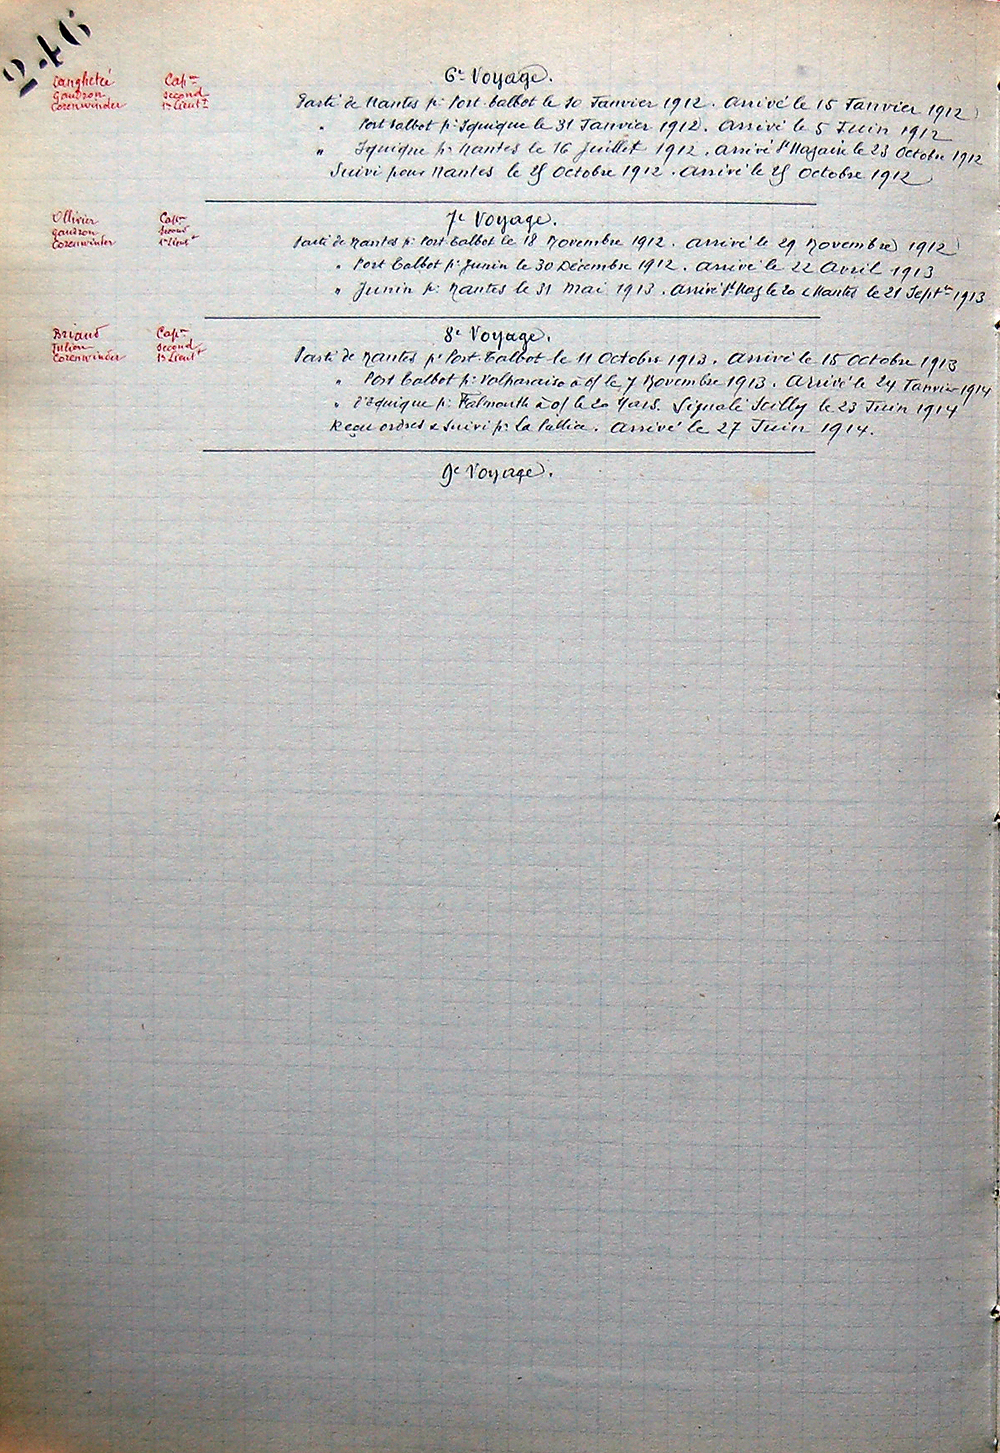 246
6e Voyage.
Langhetée Capne
Gaudron second
Corenwinder 1er Lieut
Parti de Nantes pr Port-Talbot le 10 Janvier 1912. Arrivé le 15 Janvier 1912
" Port Talbot pr Iquique le 31 Janvier 1912. Arrivé le 5 Juin 1912
" Iquique pr Nantes le 16 Juillet 1912. arrivé St Nazaire le 23 Octobre 1912
Suivi pour Nantes le 25 Octobre 1912. Arrivé le 25 Octobre 1912
7e Voyage.
Ollivier Capne
Gaudron second
Corenwinder 1er Lieut
Parti de Nantes pr Port-Talbot le 18 Novembre 1912. Arrivé le 29 Novembre 1912
" Port Talbot pr Junin le 30 Décembre 1912. Arrivé le 22 Avril 1913
" Junin pr Nantes le 31 Mai 1913. Arrivé St Naz le 20 & Nantes le 21 Septbre 1913
8e Voyage.
Briand Capne
Julien second
Corenwinder 1er Lieut
Parti de Nantes pr Port-Talbot le 11 Octobre 1913. Arrivé le 15 Octobre 1913
" Port Talbot pr Valparaiso à o/ le 7 Novembre 1913. Arrivé le 24 Janvier 1914
" d'Iquique pr Falmouth à o/ le 20 Mars. Signalé Scilly le 23 Juin 1914
Reçu ordres & suivi pr La Pallice. Arrivé le 27 Juin 1914.
9e Voyage.